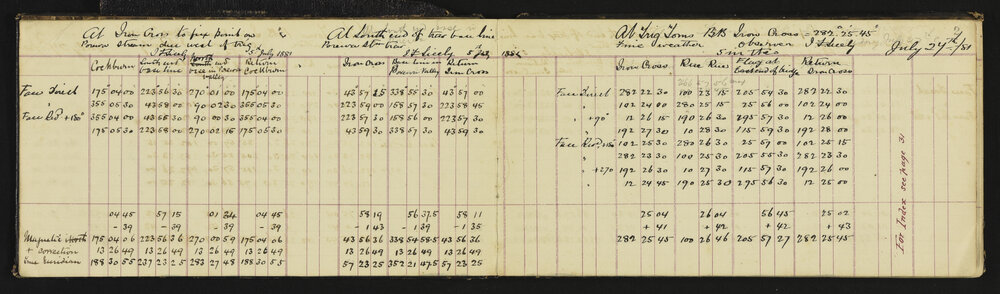 At Iron Cross to fix point on
stream due west of trig
J H Seely 5th July 1881
Cockburn South end base line North end base in Valley Return Cockburn
Face Direct 175 04 00 223 56 30 270 01 00 175 04 00
" 355 05 30 43 58 00 90 02 30 355 05 30
Face Rev + 180° 355 04 00 43 56 30 90 00 30 355 04 00
175 05 30 223 58 00 270 02 15 175 05 30
04 45 57 15 01 34 04 45
- 39 - 39 - 39 - 39
Magnetic North 175 04 06 223 56 36 270 00 59 175 04 06
+ correction 13 26 49 13 26 49 13 26 49 13 26 49
True Meridian 188 30 55 237 23 25 283 27 48 188 30 55
At South end of base line
J H Seely 5 July 1881
Iron Cross Base line in Valley Return Iron Cross
43 57 15 338 55 30 43 57 00
223 59 00 158 57 30 223 58 45
223 57 30 158 56 00 223 57 30
43 59 30 338 57 30 43 59 30
58 19 56 37.5 58 11
- 1 43 - 1 39 - 1 35
43 56 36 338 54 58.5 43 56 36
13 26 49 13 26 49 13 26 49
57 23 25 352 21 47.5 57 23 25
At Trig Toms BM Iron Cross = 282° 25' 45"
Fine weather observer J H Seely
5 in theo
July 29th / 81
Iron Cross Flag at East end of bridge Return Iron Cross
Face Direct 282 22 30 100 23 15 205 54 30 282 22 30
" 102 24 00 280 25 15 25 56 00 102 24 00
" +90° 12 26 15 190 26 30 295 57 30 12 26 00
" 192 27 30 10 28 30 115 59 30 192 28 00
Face Rev, 180 102 25 30 280 26 30 25 59 00 102 25 15
" 282 23 30 100 25 30 205 55 30 282 23 30
" +270 192 26 30 10 27 30 115 57 30 192 26 00
" 12 24 45 190 25 30 295 56 30 12 25 00
25 04 26 04 56 45 25 02
+ 41 + 42 + 42 + 43
282 25 45 100 26 46 205 57 27 282 25 45
For Index see page 31